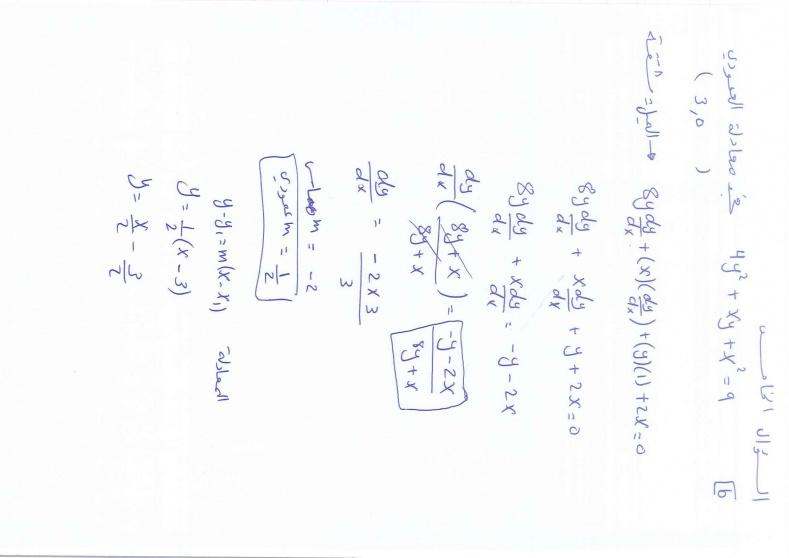 السؤال الخامس
b
جد معادلة العمودي 4y² + xy + x² = 9
( 3,0 )
الميل = مشتقة → 8y dy/dx + (x)(dy/dx) + (y)(1) + 2x = 0
8y dy/dx + x dy/dx + y + 2x = 0
8y dy/dx + x dy/dx = -y - 2x
dy/dx ( 8y + x / 8y + x ) = -y - 2x / 8y + x
dy/dx = -2 × 3 / 3
m مماس = -2
m عمودي = 1/2
المعادلة y - y₁ = m(x - x₁)
y = 1/2 (x - 3)
y = x/2 - 3/2